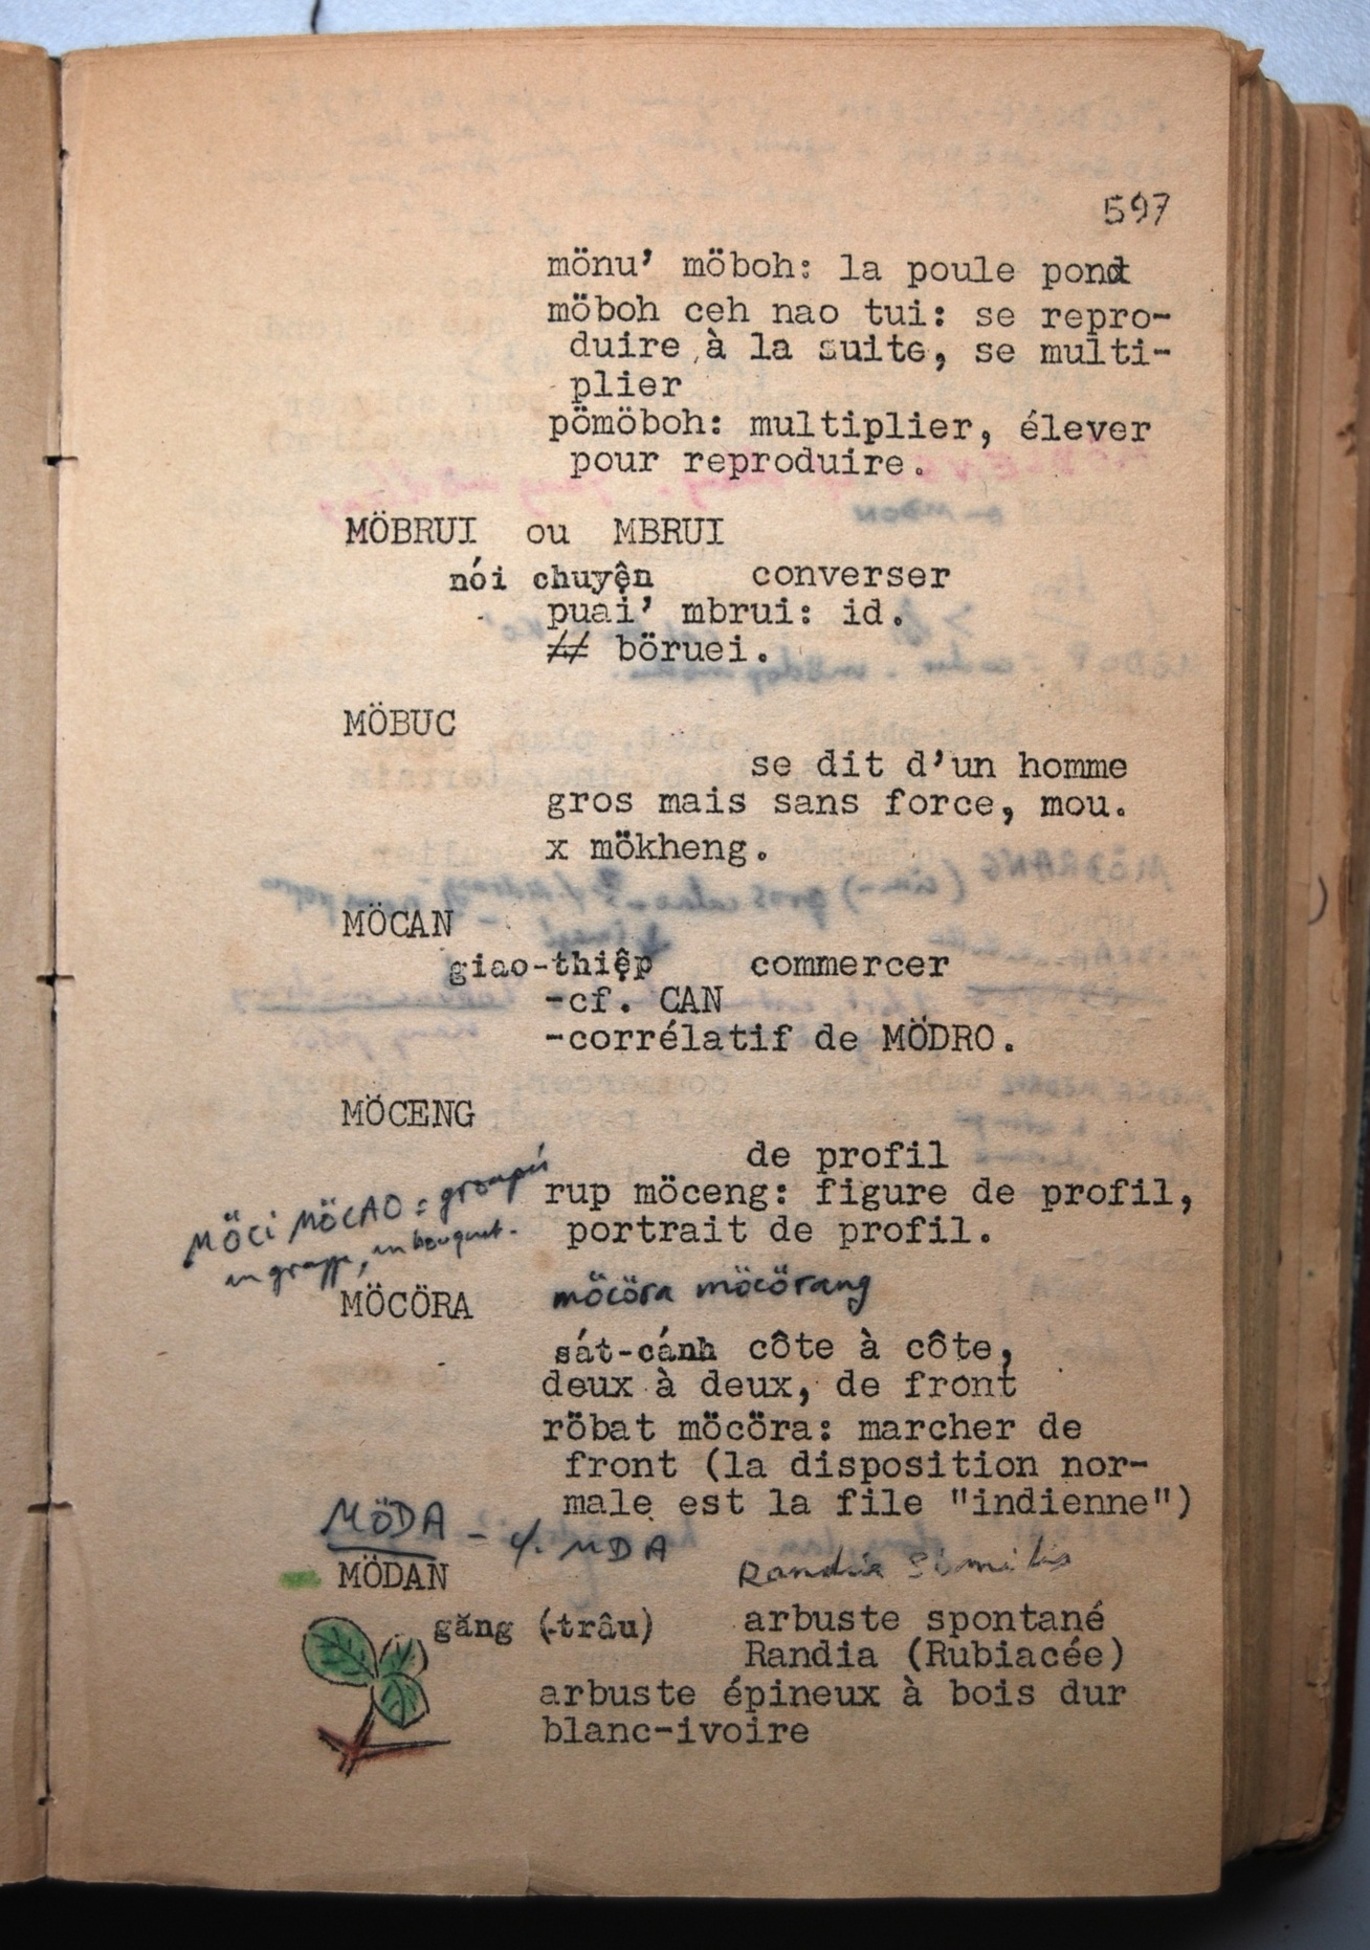 597
mönu’ möboh: la poule pond
möboh ceh nao tui: se repro-
duire à la suite, se multi-
plier
pömöboh: multiplier, élever
pour reproduire.
MÖBRUI ou MBRUI
nói chuyện converser
puai’ mbrui: id.
≠≠ böruei.
MÖBUC
se dit d’un homme
gros mais sans force, mou.
x mökheng.
MÖCAN
giao-thiệp commercer
-cf. CAN
-corrélatif de MÖDRO.
MÖCENG
de profil
rup möceng: figure de profil,
portrait de profil.
MÖCi MÖCAO = groupés
en grappe, en bouquet.
MÖCÖRA möcöra möcörang
sát-cánh côte à côte,
deux à deux, de front
röbat möcöra: marcher de
front (la disposition nor-
male est la file "indienne")
MÖDA - cf. MDA
MÖDAN Randia Similis
găng (-trâu) arbuste spontané
Randia (Rubiacée)
arbuste épineux à bois dur
blanc-ivoire